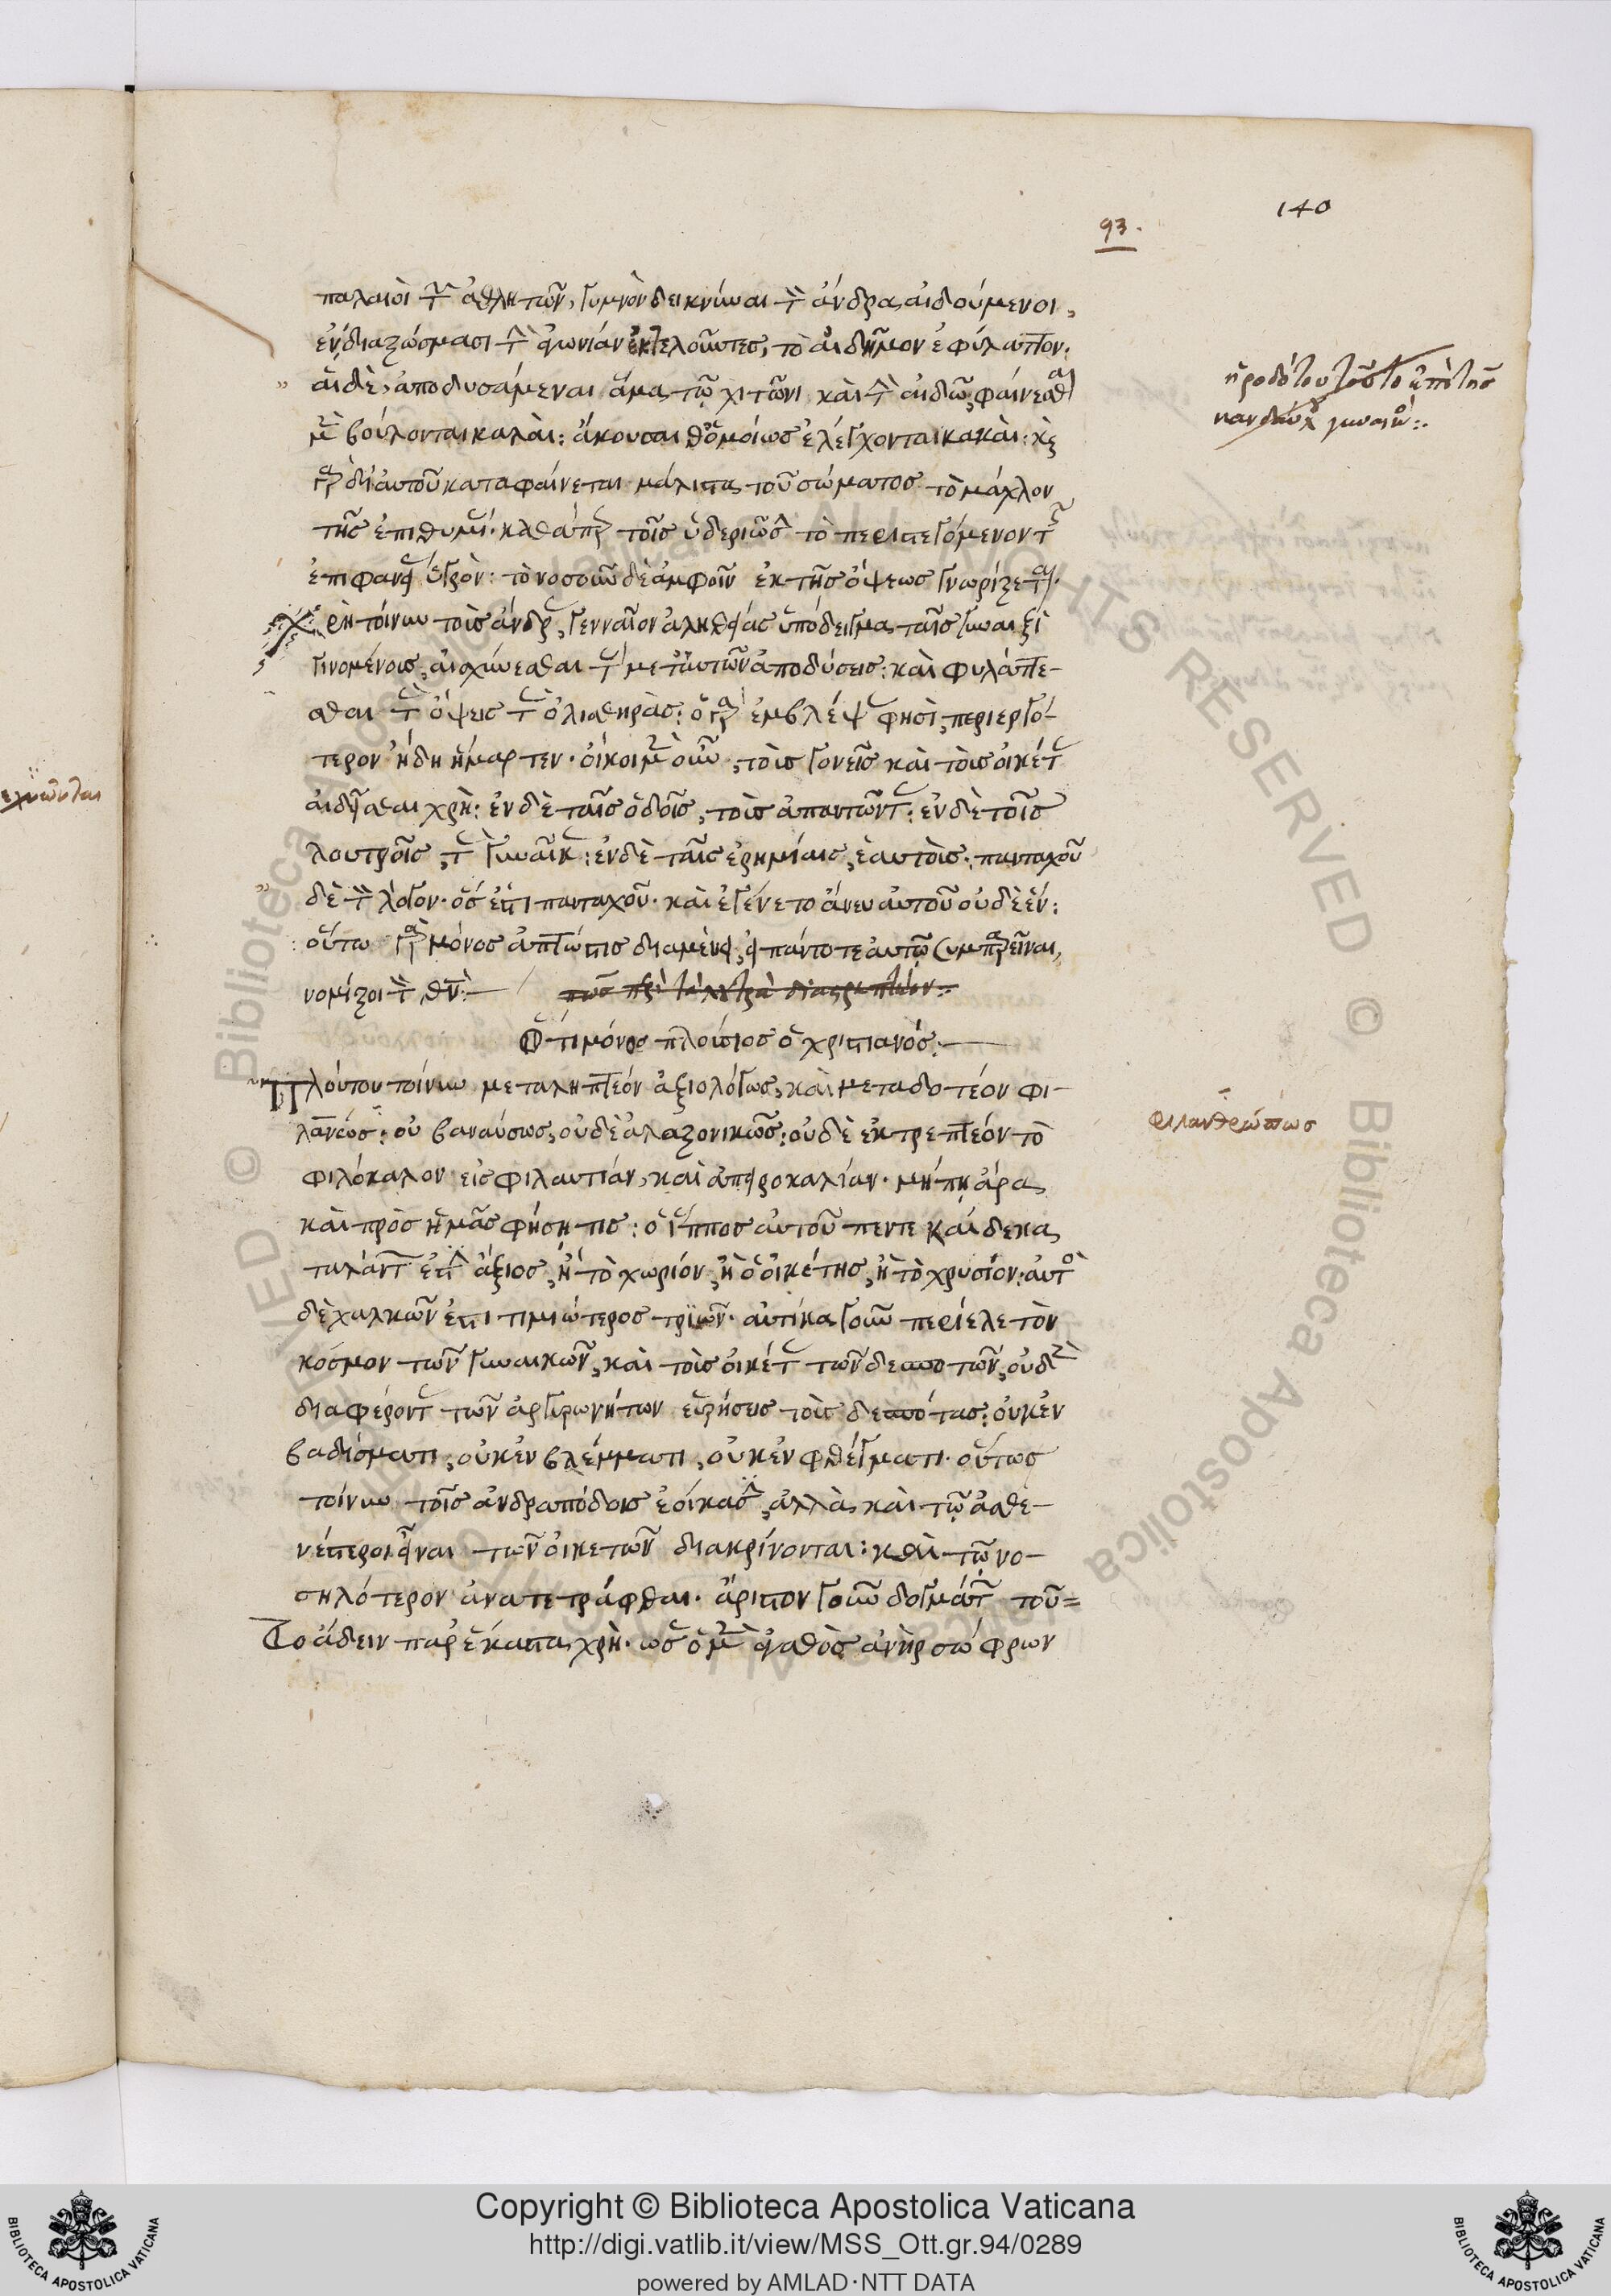 140
93.
παλαιοὶ τῶν ἀθλητῶν, γυμνὸν δεικνύναι τὸν ἄνδρα αἰδούμενοι,
ἐν διαζώσμασι τὴν ἀγωνίαν ἐκτελοῦντες, τὸ αἰδῆμον ἐφύλαττον·
αἱ δὲ, ἀποδυσάμεναι ἅμα τῷ χιτῶνι καὶ τὴν αἰδῶ, φαίνεσθαι
μὲν βούλονται καλαὶ: ἄκουσαι δὲ ὁμοίως ἐλέγχονται κακαὶ: καὶ
γὰρ δι' αὐτοῦ καταφαίνεται μάλιστα τοῦ σώματος τὸ μάχλον
τῆς ἐπιθυμίας· καθάπερ τοῖς ὑδεριῶσι τὸ περιστεγόμενον τῇ
ἐπιφανείᾳ ὑγρὸν: τὸ νοσοῦν δὲ ἀμφοῖν ἐκ τῆς ὄψεως γνωρίζεται·
χρὴ τοίνυν τοὺς ἄνδρας, γενναῖον ἀληθείας ὑπόδειγμα ταῖς γυναιξὶ
γινομένους, αἰσχύνεσθαι τὰς μετ' αὐτῶν ἀποδύσεις: καὶ φυλάττε-
σθαι τὰς ὄψεις τὰς ὀλισθηρὰς: ὁ γὰρ ἐμβλέψας φησὶ, περιεργό-
τερον ἤδη ἥμαρτεν· οἴκοι μὲν οὖν, τοὺς γονεῖς καὶ τοὺς οἰκέτας
αἰδεῖσθαι χρὴ: ἐν δὲ ταῖς ὁδοῖς, τοὺς ἀπαντῶντας: ἐν δὲ τοῖς
λουτροῖς, τὰς γυναῖκας: ἐν δὲ ταῖς ἐρημίαις, ἑαυτοὺς: πανταχοῦ
δὲ τὸν λόγον· ὅς ἐστι πανταχοῦ· καὶ ἐγένετο ἄνευ αὐτοῦ οὐδὲ ἕν:
οὕτω γὰρ μόνος ἀπτώς τις διαμένει, εἰ πάντοτε αὐτῷ συμπαρεῖναι,
νομίζοι τὸν θν:
πῶς περὶ τὰ λουτρὰ διατρεπτέον:
Ὅτι μόνος πλούσιος ὁ χριστιανός:
Πλούτου τοίνυν μεταληπτέον ἀξιολόγως, καὶ μεταδοτέον φι-
λανώς: οὐ βαναύσως, οὐδὲ ἀλαζονικῶς: οὐδὲ ἐκτρεπτέον τὸ
φιλόκαλον εἰς φιλαυτίαν, καὶ ἀπειροκαλίαν· μή πῃ ἄρα
καὶ πρὸς ἡμᾶς φήσῃ τις: ὁ ἵππος αὐτοῦ πεντεκαίδεκα
ταλάντων ἐστὶν ἄξιος, ἢ τὸ χωρίον, ἢ ὁ οἰκέτης, ἢ τὸ χρυσίον: αὐτὸς
δὲ χαλκῶν ἐστι τιμιώτερος τριῶν· αὐτίκα γοῦν περίελε τὸν
κόσμον τῶν γυναικῶν, καὶ τοὺς οἰκέτας τῶν δεσποτῶν, οὐδὲν
διαφέροντας τῶν ἀργυρωνήτων εὑρήσεις τοὺς δεσπότας: οὐκ ἐν
βαδίσματι, οὐκ ἐν βλέμματι, οὐκ ἐν φθέγματι· οὕτως
τοίνυν τοῖς ἀνδραπόδοις ἐοίκασιν, ἀλλὰ καὶ τῷ ἀσθε-
νέστεροι εἶναι τῶν οἰκετῶν διακρίνονται: καὶ τῷ νο-
σηλότερον ἀνατετράφθαι· ἄριστον γοῦν δογμάτων τοῦ=
το ᾄδειν παρ' ἕκαστα χρὴ· ὡς ὁ μὲν ἀγαθὸς ἀνὴρ σώφρων
ἡροδότου τοῦτο ἐπὶ τῆς
κανδαύλ γυναικὸς:.
φιλανθρώπως
Copyright © Biblioteca Apostolica Vaticana
http://digi.vatlib.it/view/MSS_Ott.gr.94/0289
powered by AMLAD·NTT DATA
BIBLIOTECA APOSTOLICA VATICANA
BIBLIOTECA APOSTOLICA VATICANA